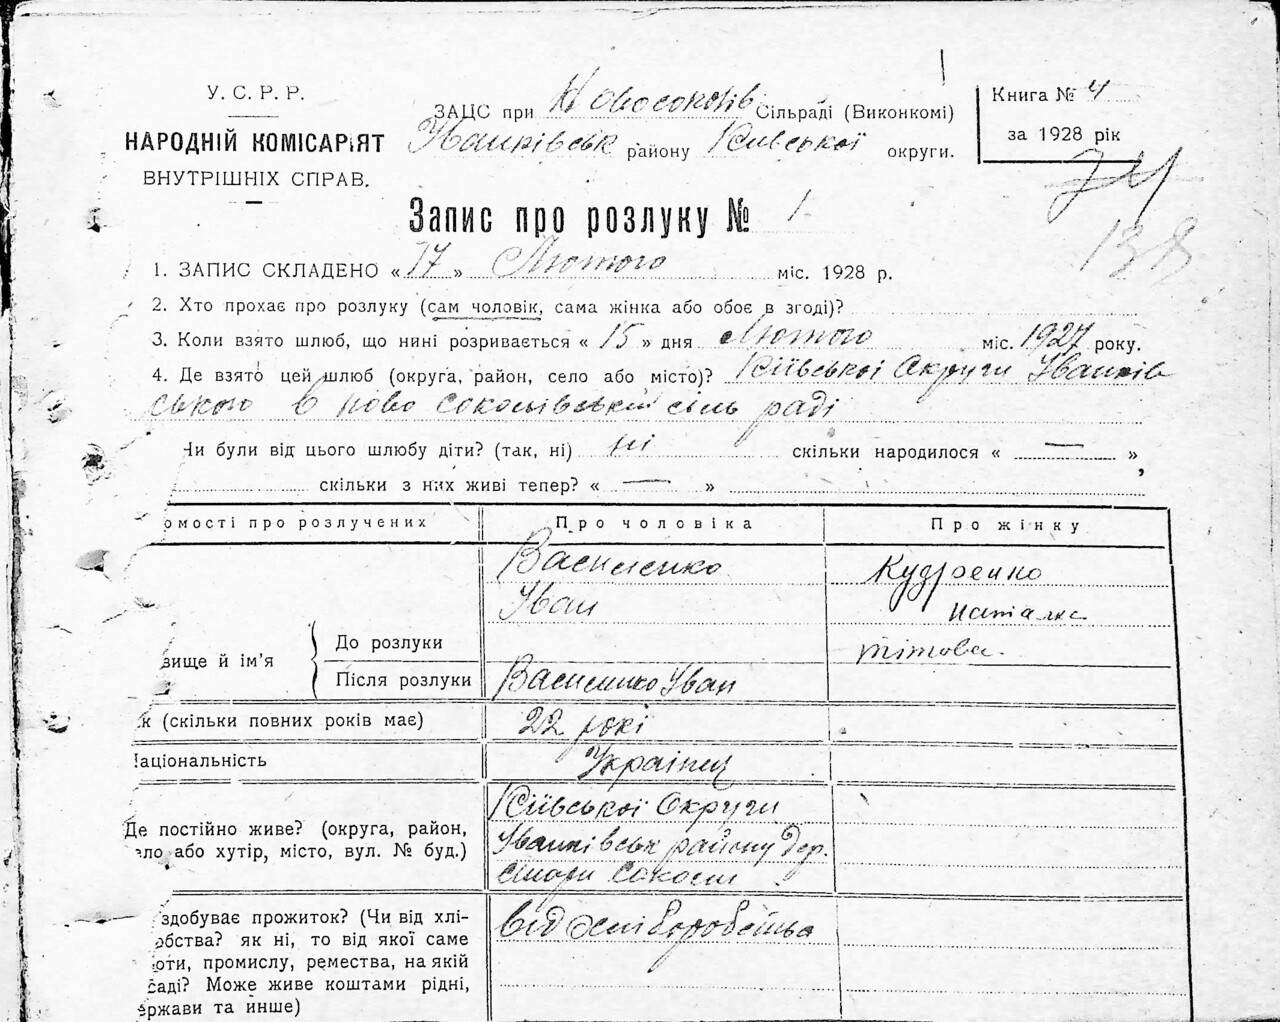 У. С. Р. Р.
НАРОДНІЙ КОМІСАРІЯТ
ВНУТРІШНІХ СПРАВ.
ЗАЦС при Новосоколів Сільраді (Виконкомі)
Іванківськ району Київської округи.
Книга № 4
за 1928 рік
138
Запис про розлуку № 1
1. ЗАПИС СКЛАДЕНО « 17 » Лютого міс. 1928 р.
2. Хто прохає про розлуку (сам чоловік, сама жінка або обоє в згоді)?
3. Коли взято шлюб, що нині розривається « 15 » дня Лютого міс. 1927 року.
4. Де взято цей шлюб (округа, район, село або місто)? Київської Округи Іванків
ського в ново соколівській сіль раді
Чи були від цього шлюбу діти? (так, ні) ні скільки народилося « — »
скільки з них живі тепер? « — »
омості про розлучених Про чоловіка Про жінку
Василенко Кудренко
Іван Наталка
До розлуки тітова.
вище й ім'я
Після розлуки Василенко Іван
к (скільки повних років має) 22 рокі
Національність Українец
Київської Округи
Де постійно живе? (округа, район, Іванківськ району дер.
ело або хутір, місто, вул. № буд.) Стари Соколи
здобуває прожиток? (Чи від хлі- від хліборобства
обства? як ні, то від якої саме
оти, промислу, ремества, на якій
саді? Може живе коштами рідні,
ержави та инше)